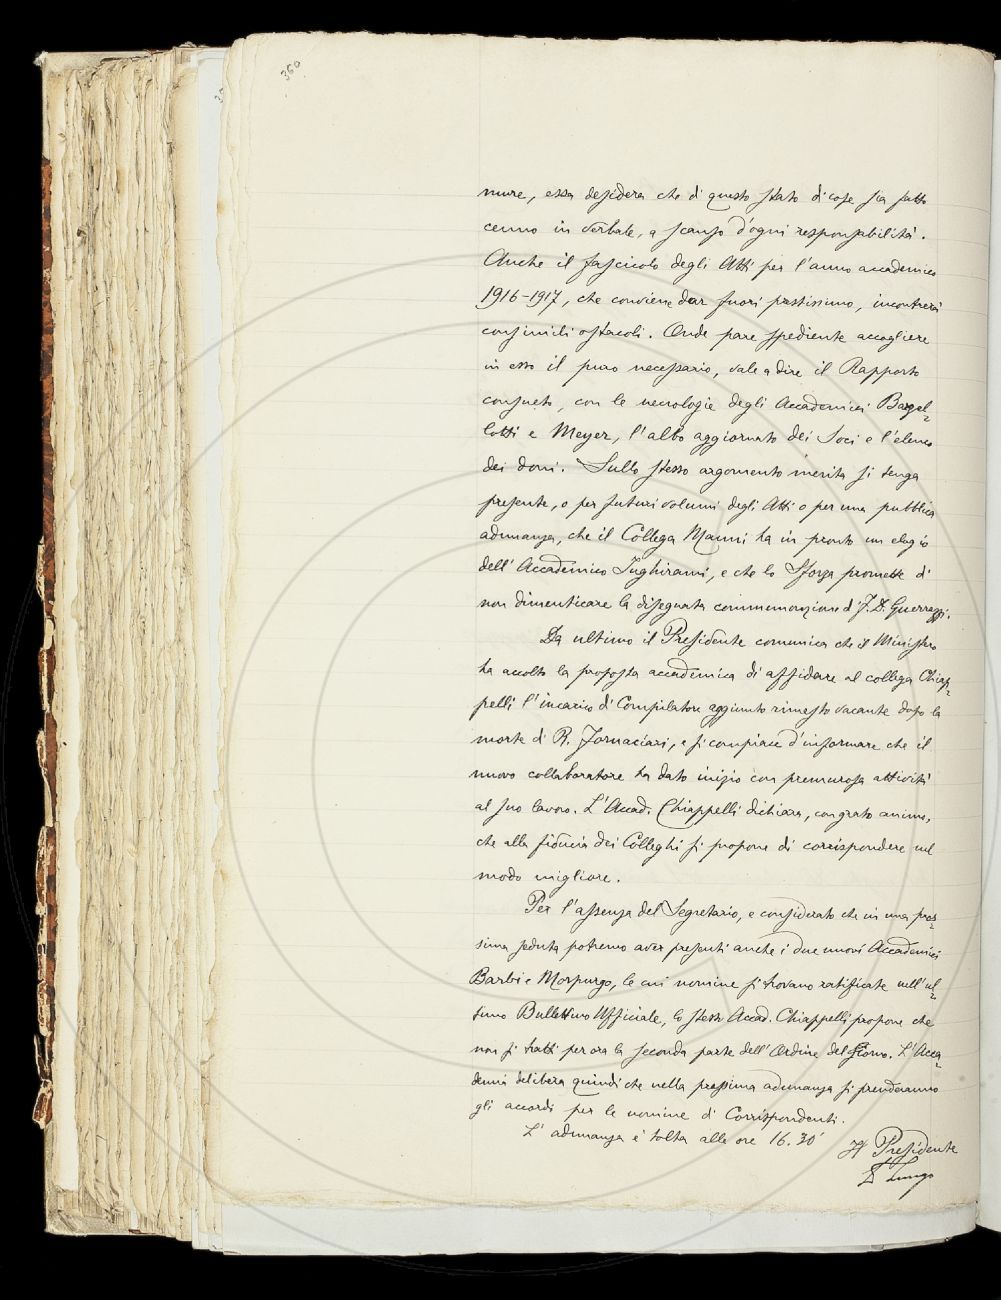 360
mure, essa desidera che di questo stato di cose sia fatto
cenno in verbale, a scanso d'ogni responsabilità.
Anche il fascicolo degli Atti per l'anno accademico
1916-1917, che conviene dar fuori prestissimo, incontrerà
consimili ostacoli. Onde pare spediente accogliere
in esso il puro necessario, vale a dire il Rapporto
consueto, con le necrologie degli Accademici Bargel=
lotti e Meyer, l'albo aggiornato dei Soci e l'elenco
dei doni. Sullo stesso argomento merita si tenga
presente, o per futuri volumi degli Atti o per una pubblica
adunanza, che il Collega Manni ha in pronto un elogio
dell'Accademico Inghirami, e che lo Sforza promette di
non dimenticare la disegnata commemorazione di F. D. Guerrazzi.
Da ultimo il Presidente comunica che il Ministro
ha accolto la proposta accademica di affidare al collega Chiap=
pelli l'incarico di Compilatore aggiunto rimasto vacante dopo la
morte di R. Fornaciari, e si compiace d'informare che il
nuovo collaboratore ha dato inizio con premurosa attività
al suo lavoro. L'Accad. Chiappelli dichiara, con grato animo,
che alla fiducia dei Colleghi si propone di corrispondere nel
modo migliore.
Per l'assenza del Segretario, e considerato che in una pros=
sima seduta potremo aver presenti anche i due nuovi Accademici
Barbi e Morpurgo, le cui nomine si trovano ratificate nell'ul=
timo Bullettino Ufficiale, lo stesso Accad. Chiappelli propone che
non si tratti per ora la seconda parte dell'Ordine del Giorno. L'Acca=
demia delibera quindi che nella prossima adunanza si prenderanno
gli accordi per le nomine di Corrispondenti.
L'adunanza è tolta alle ore 16.30'
Il Presidente
D Lungo